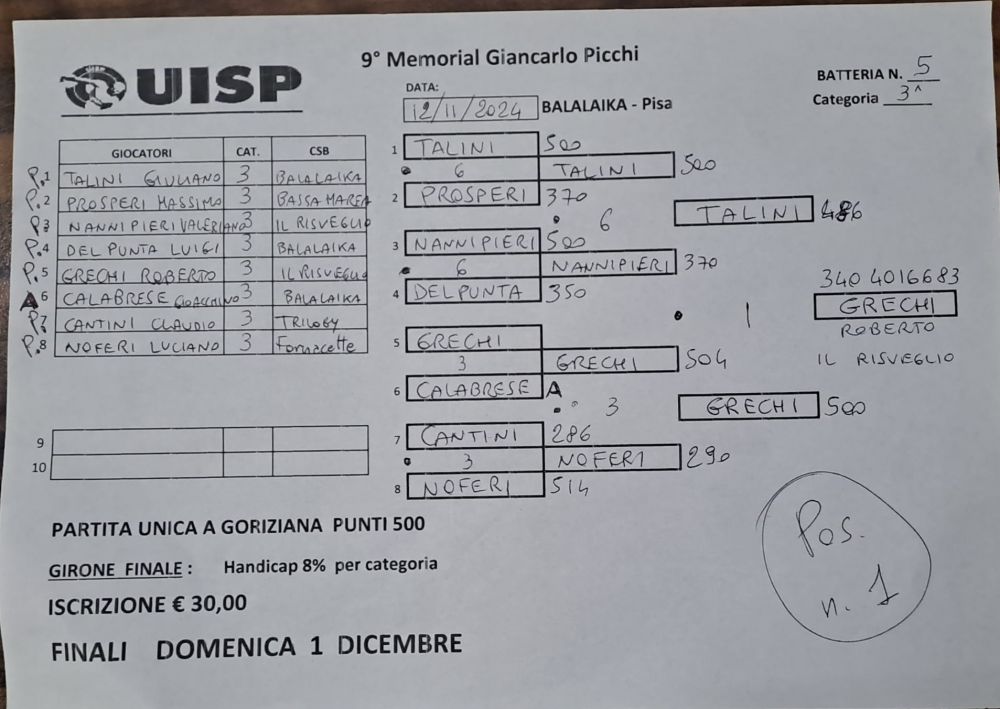 UISP
9° Memorial Giancarlo Picchi
DATA:
12/11/2024 BALALAIKA - Pisa
BATTERIA N. 5
Categoria 3^
GIOCATORI CAT. CSB
P.1 TALINI GIULIANO 3 BALALAIKA
P.2 PROSPERI MASSIMO 3 BASSA MAREA
P3 NANNIPIERI VALERIANO 3 IL RISVEGLIO
P.4 DEL PUNTA LUIGI 3 BALALAIKA
P.5 GRECHI ROBERTO 3 IL RISVEGLIO
A6 CALABRESE GIOACCHINO 3 BALALAIKA
P7 CANTINI CLAUDIO 3 TRILOGY
P.8 NOFERI LUCIANO 3 Fornacette
9
10
1 TALINI 500
6 TALINI 500
2 PROSPERI 370
6 TALINI 486
3 NANNIPIERI 500
6 NANNIPIERI 370
4 DELPUNTA 350
340 4016683
1 GRECHI
ROBERTO
IL RISVEGLIO
5 GRECHI
3 GRECHI 504
6 CALABRESE A
3 GRECHI 500
7 CANTINI 286
3 NOFERI 290
8 NOFERI 514
PARTITA UNICA A GORIZIANA PUNTI 500
GIRONE FINALE : Handicap 8% per categoria
ISCRIZIONE € 30,00
FINALI DOMENICA 1 DICEMBRE
Pos.
n. 1